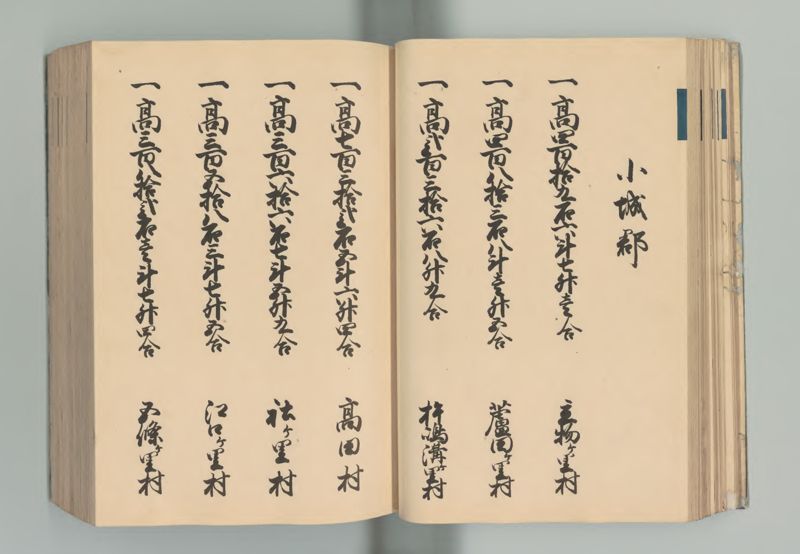 小城郡
一高四百拾九石六斗七升壱合 立物ヶ里村
一高四百八拾三石八斗壱升五合 蘆田ヶ里村
一高弐百三拾六石八升九合 杵嶋溝ヶ里村
一高七百三拾弐石五斗六升四合 高田村
一高三百六拾六石七斗五升九合 社ヶ里村
一高三百五拾八石三斗七升五合 江口ヶ里村
一高三百八拾弐石壱斗七升四合 五條ヶ里村